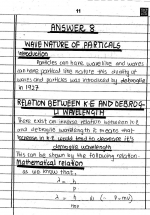 11
ANSWER 8
WAVE NATURE OF PARTICALS
Introduction
Particals can have wavelike and waves
can have partical like nature this duality of
waves and particals was introduced by debroglie
in 1937
RELATION BETWEEN K.E AND DEBROG-
LI WAVELENGTH
There exist an inverse relation between K.E
and debroglie wavelength it means that
increase in K.E would tend to decrease it's
debroglie wavelength
This can be shown by the following relation
Mathematical relation
as we know that,
λ = h
P
λ = h ∴ (∵ P=mv)
mv